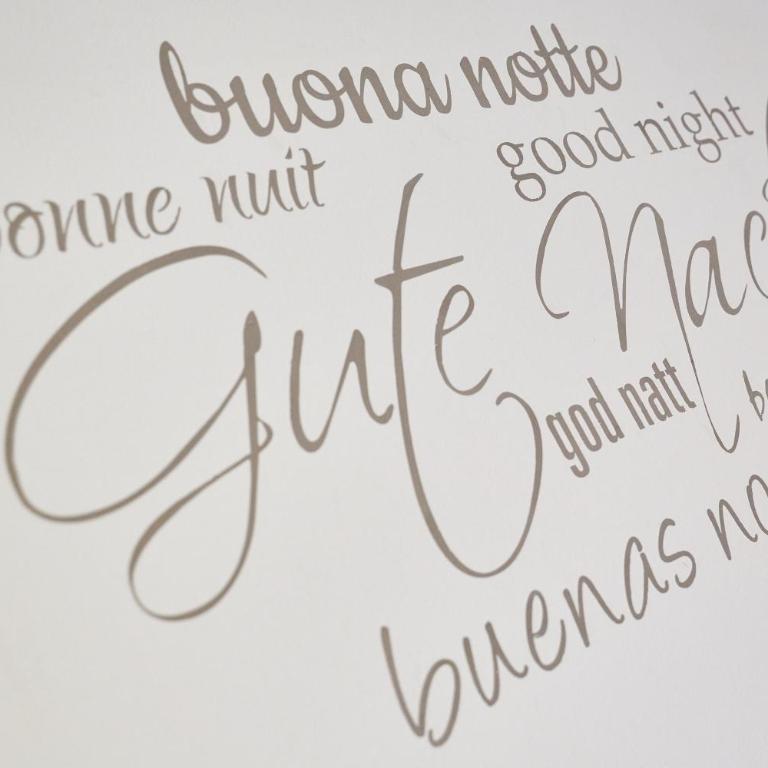 buona notte
good night
onne nuit
Gute Nac
god natt
buenas no